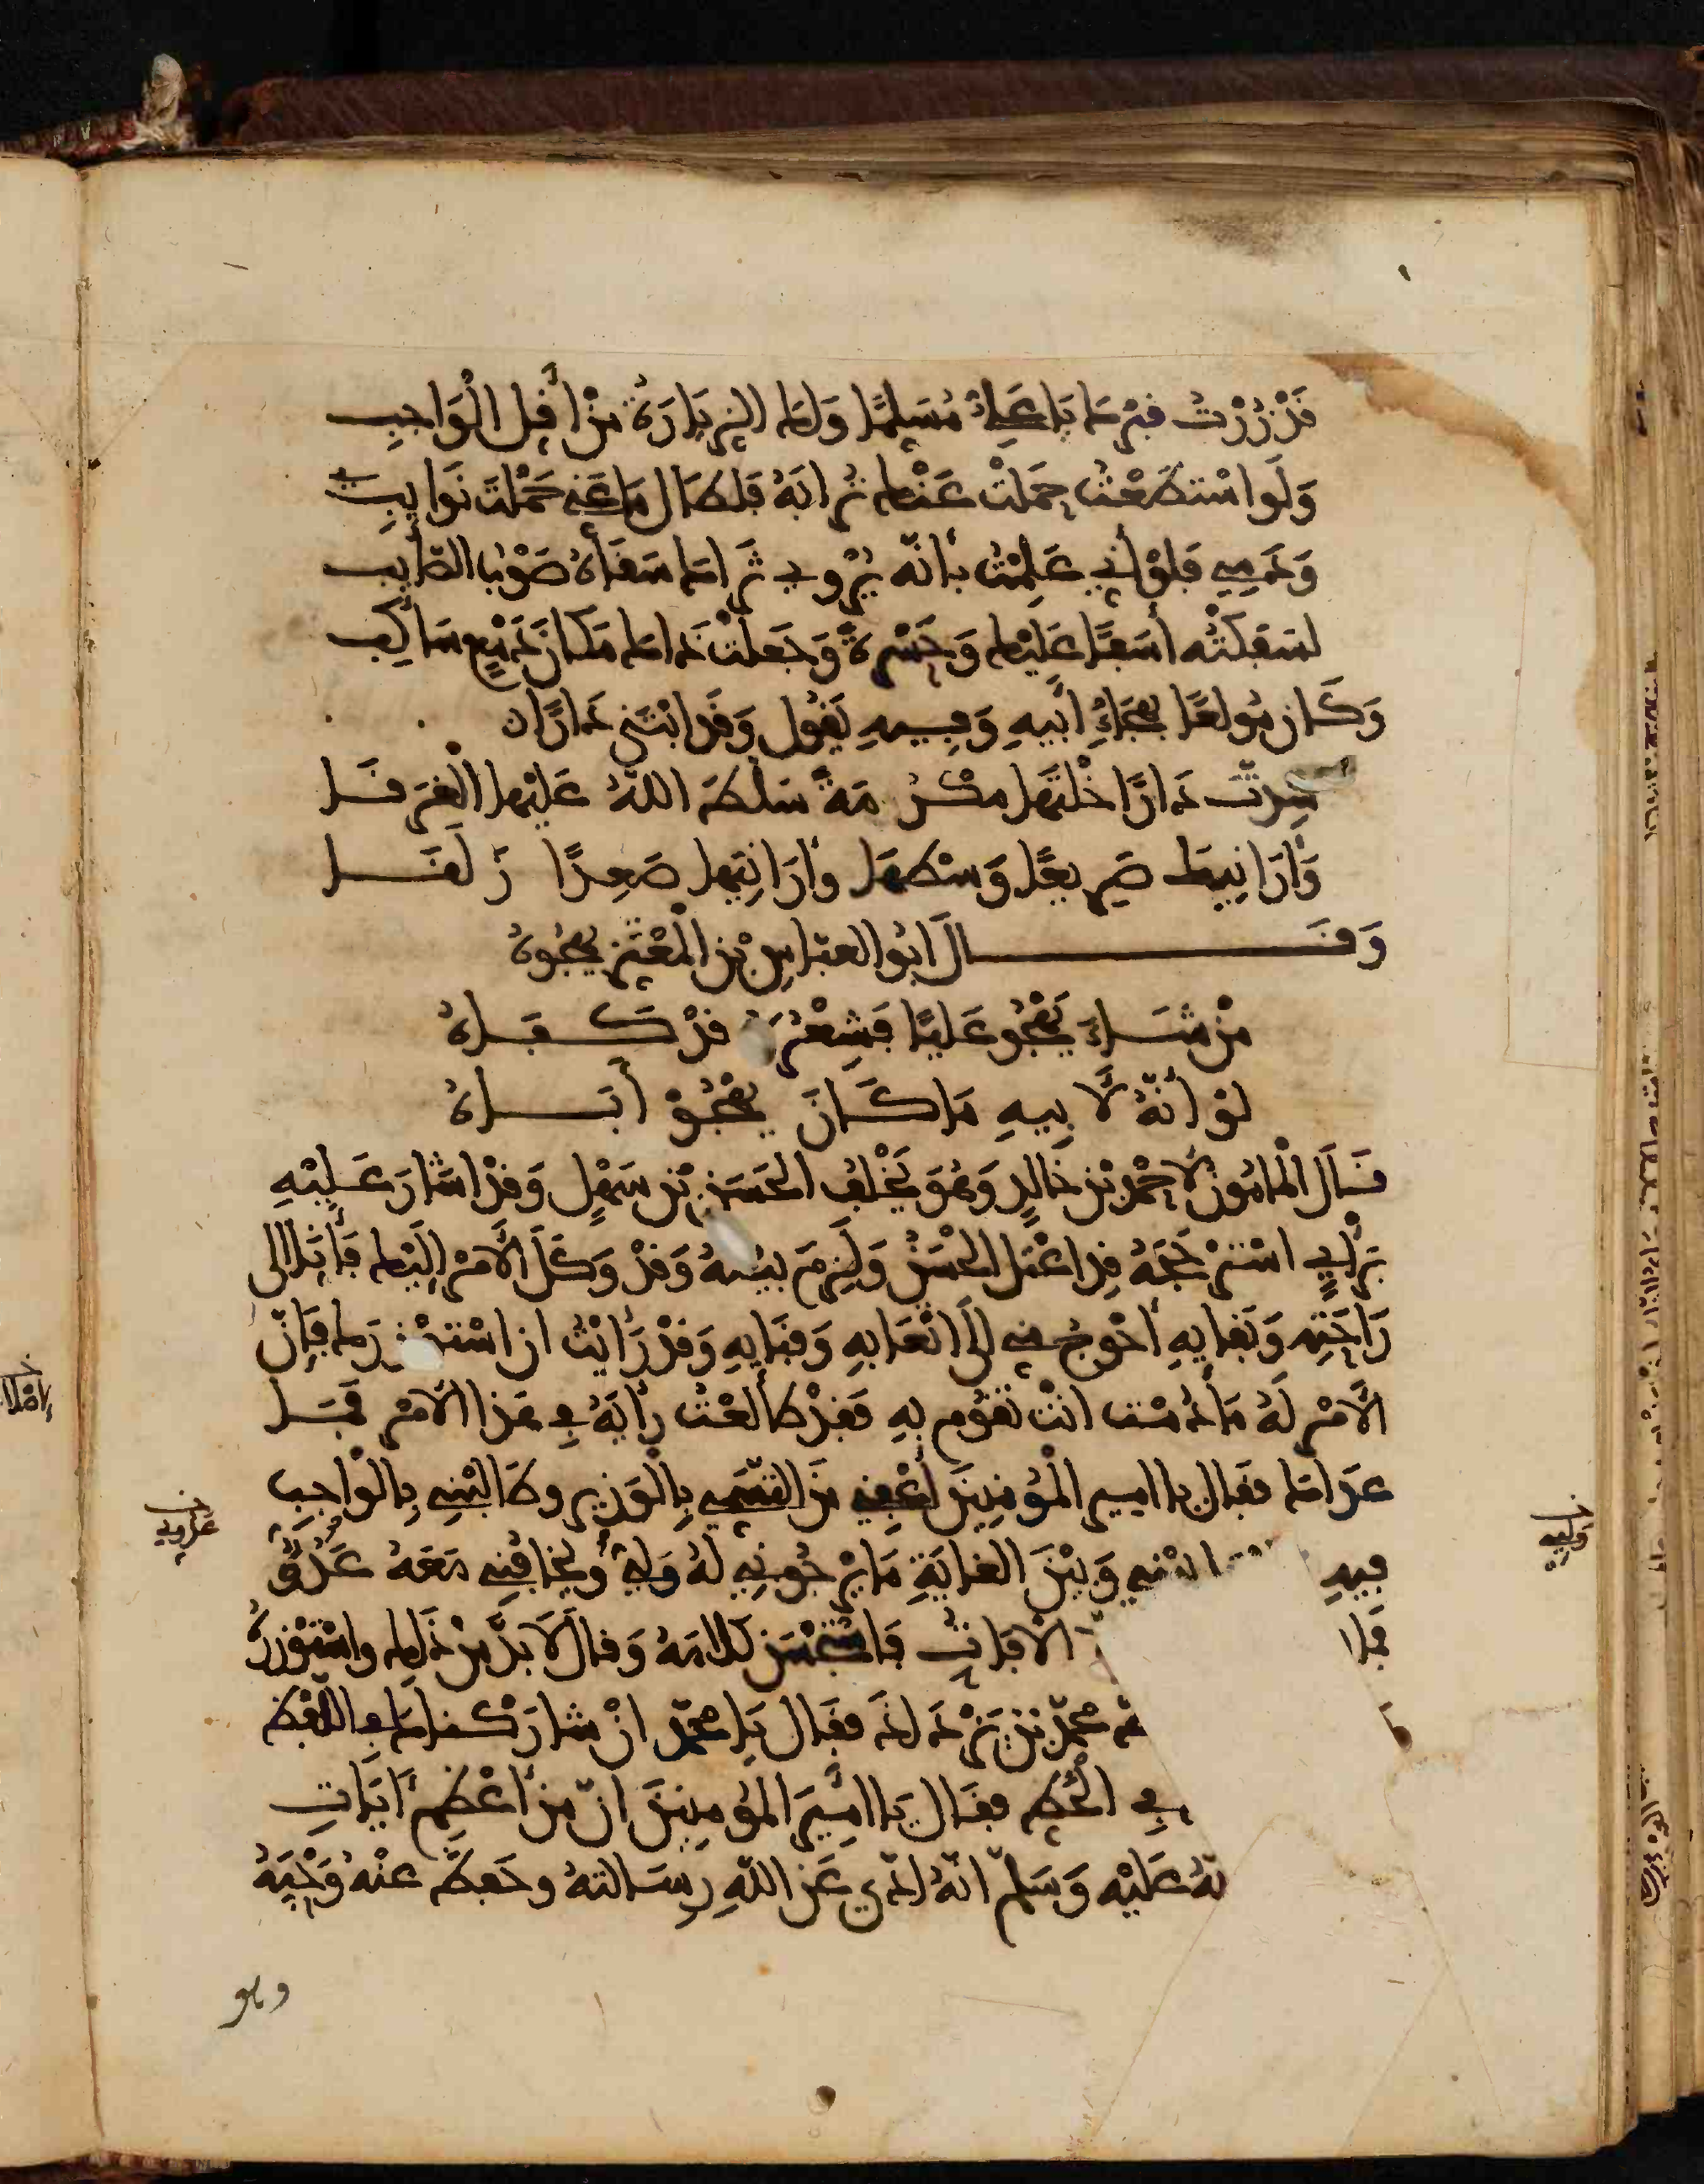 قَدْ زُرْتُ قبرَك يَا عَلِيُّ مُسَلِّمًا وَلَك الزيَارَةُ مِنْ أقلِ الْوَاجِبِ
وَلَو اسْتَطَعْتُ حَمَلْتُ عَنْك تُرابَهُ فلطَال مَا عَنِّي حَمَلْتَ نَوَايِبِي
وَدَمِي فَلَوْ أَنِّي عَلِمْتُ بأنّه يُرْوِي ثَرَاكَ سَقَاهُ صَوْبُ الصَّايِبِ
لسَفَكْتُه أسَفًا عَلَيْك وَحَسْرَةً وَجَعلْتُ ذَاك مَكَانَ دَمْعٍ سَاكِبِ
وَكَان مُولعًا بهجَاءِ أبِيهِ وَفِيهِ يَقُول وَقَد ابْتَنَى دَارًا
شِدتَّ دَارًا خلْتَهَا مكْرُمَةً سَلَّطَ اللهُ عَلَيْهَا الْغَرَقَا
وَأَرَانِيكَ صَرِيعًا وَسْطَهَا وأَرَانِيهَا صَعِدًا زَلَقَا
وَقَالَ ابُو العبّاسِ بْن الْمُعْتَز يهجُوهُ
مَنْ شَاءَ يَهْجُو عَلِيًّا فَشِعْرُهُ قدْ كَفَاهُ
لوْ أنّهُ لأَبِيهِ مَا كَانَ يهْجُوْ أَبَاهُ
قَالَ الْمَامُون لأحْمَد بْن خَالِدٍ وَهُوَ يَخْلُف الحَسَن بْن سَهْلٍ وَقدْ اشَارَ عَلَيْهِ
بِرَأْيٍ اسْتَرْجَحَهُ قدِ اعْتلّ الحْسَنُ وَلَزِمَ بيْتهُ وَقدْ وَكَلَ الأَمْرَ إلَيْك فَأَنَا إلى
رَاحَتِه وَبَقايِهِ أَحْوَجُ مِنِّي إلَى اتْعَابِهِ وَفنَايِهِ وَقدْ رَأيْتُ ان اسْتوْزرَك فَإِنّ
الأَمْر لَهُ مَا دُمْت انْت تَقُوم بِهِ فقدْ طَالعْتُ رأيَهُ فِي هَذا الأَمْر فمَا
عدَاك فقَال يا امير الْمُؤمِنِينَ أعْفِنِي مِنَ التّسَمِّي بِالْوَزِير وطَالبْنِي بِالْوَاجِبِ
فِيهِ بيْنِي وَبيْنَ الغايَةِ مَا يرْجُونِي لهُ وَلِيّ ويخَافُنِي مَعَهُ عَدُوٌّ
فمَا الآفَاتُ فاسْتحْسَنَ كلامَهُ وَقالَ لاَ بدَّ مِنْ ذَلِك واسْتَوْزرَهُ
محمّد بْن يَزْدَادَ فقَال يَا محمّد انْ شارَكنَاك في اللّفظ
فِي الْخطّ فقَال يَا أمِيرَ المؤمِنِينَ انّ مِن أعْظَم آيَاتِ
عَلَيْهِ وَسَلّمَ انّهُ ادّى عَن اللّهِ رِسَالتهُ وحَفِظَ عنْهُ وَحْيَهُ
وهو